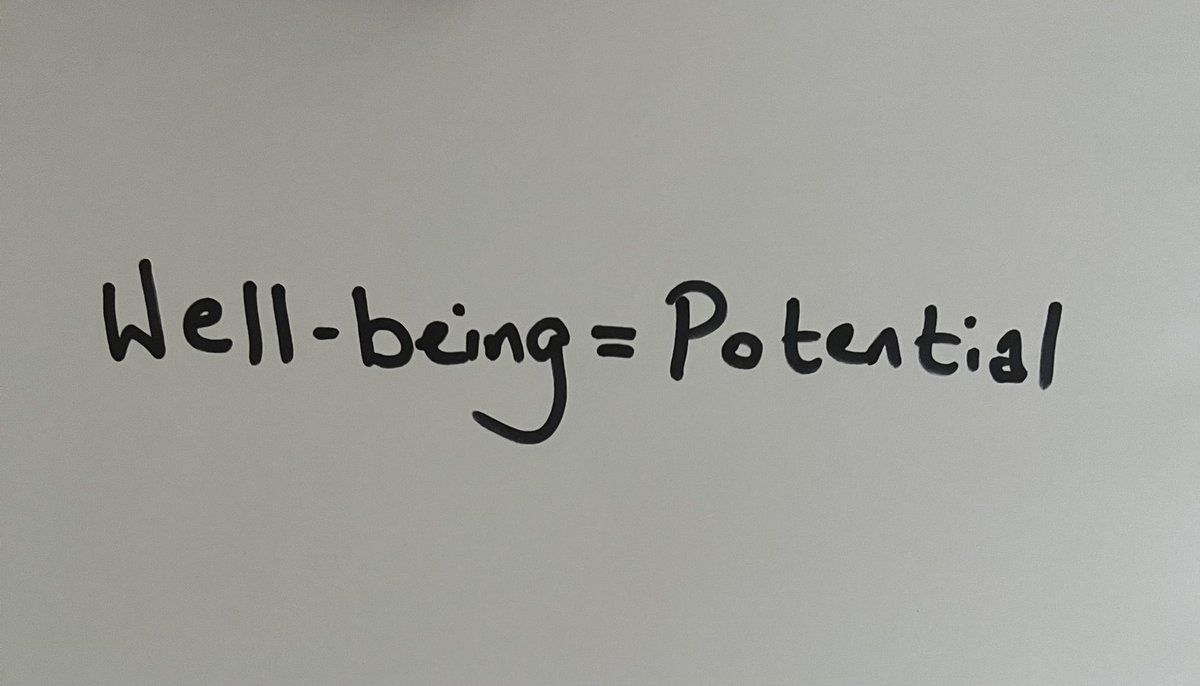 Well-being = Potential